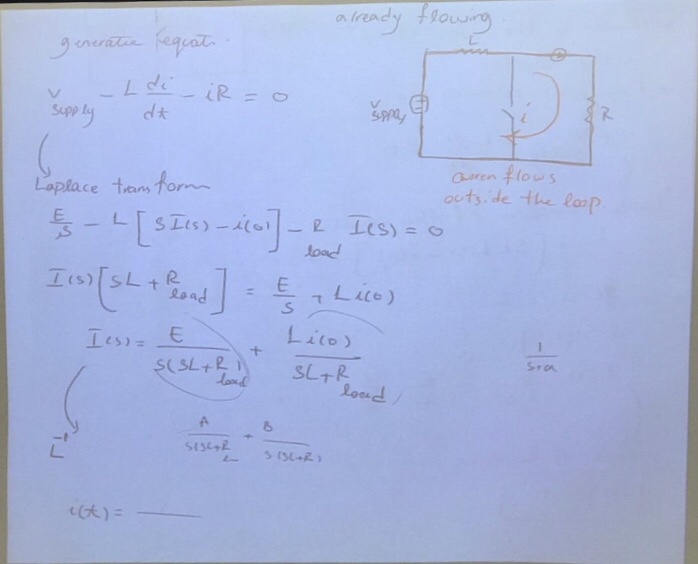 already flowing.
generatic equat.
V supply - L di/dt - iR = 0
L
V supply
i
R
curren flows
outside the loop
Laplace transform
E/s - L [ s I(s) - i(0) ] - R load I(s) = 0
I(s) [ sL + R load ] = E/s + L i(0)
I(s) = E / s(sL + R load) + L i(0) / sL + R load
1/s+a
L⁻¹
A / s(sL+R + B / s(sL+R)
i(t) =